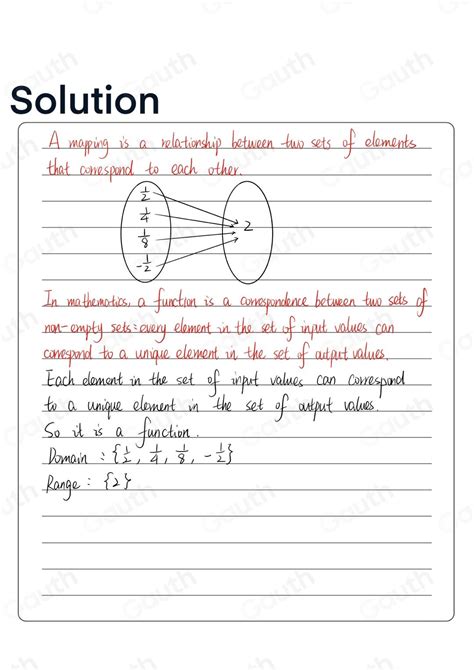 Solution
A mapping is a relationship between two sets of elements
that correspond to each other.
1/2
1/4
1/8
-1/2
2
In mathematics, a function is a correspondence between two sets of
non-empty sets: every element in the set of input values can
correspond to a unique element in the set of output values.
Each element in the set of input values can correspond
to a unique element in the set of output values.
So it is a function.
Domain : {1/2, 1/4, 1/8, -1/2}
Range : {2}